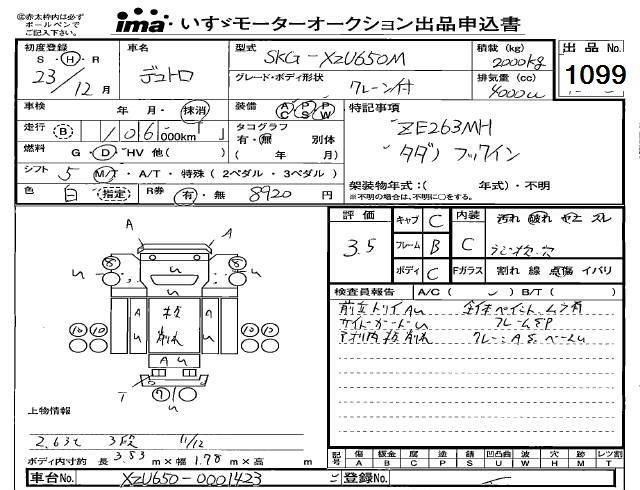 ㊟赤太枠内は必ず
ボールペンで
ご記入下さい。
ima いすゞモーターオークション出品申込書
初度登録 車名 型式 SKG-XZU650M 積載(kg) 2000kg 出品No.
S・H・R
23/12月 デュトロ グレード・ボディ形状 クレーン付 排気量(cc) 4000cc 1099
車検 年 月・抹消 装備 AC PS PW 特記事項
走行 B 106,000km タコグラフ 有・無 別体 ZE263MH
燃料 G・D・HV 他( ) ( 年 月) タダノ フックイン
シフト 5 M/T・A/T・特殊(2ペダル・3ペダル) 架装物年式:( 年式)・不明
色 白 指定 R券 有・無 8920円 ※不明の場合は、不明に○をする。
評価 3.5 キャブ C 内装 C 汚れ 破れ ヤニ スレ
フレーム B ラジオ穴
ボディ C Fガラス 割れ 線 点傷 イバリ
検査員報告 A/C( ) B/T( )
サイドガード U フレームSP
A A
U
A A
板
削れ
A U
10 10 10 10
T
7
U
上物情報
2.63t 3段 11/12
ボディ内寸約 長 3.53 m×幅 1.78 m×高 m
記号 傷 A 板金 B 腐 C 塗 P 錆 S 凹凸曲 U 波 W 穴 H 跡 M レツ割 T
車台No. XZU650-0001423 ご記入欄